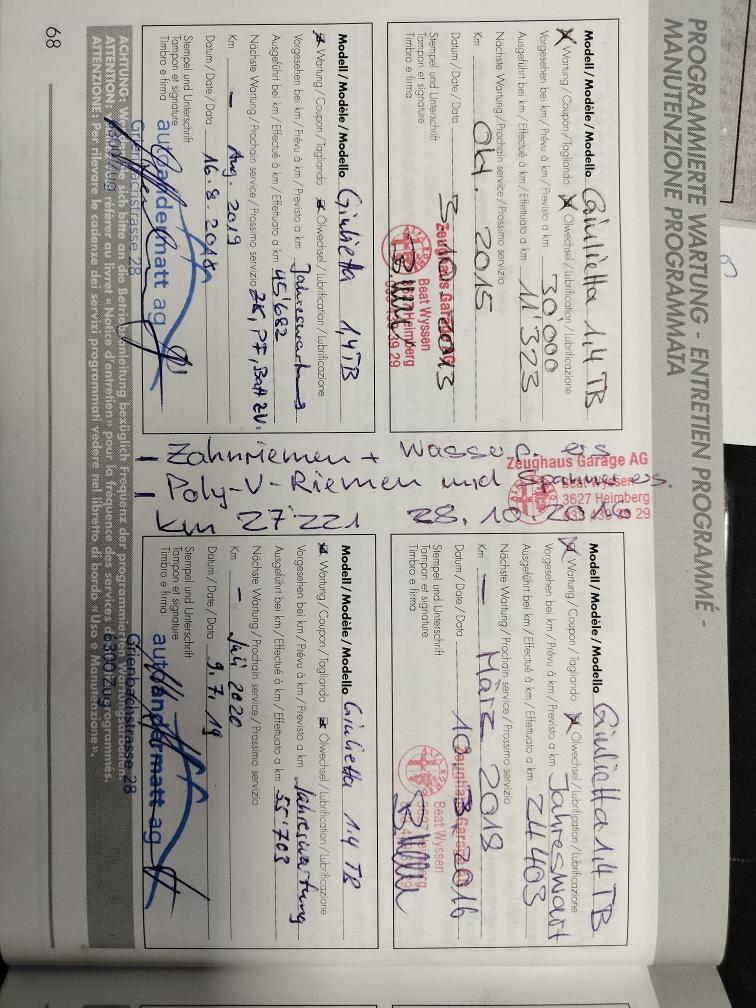 PROGRAMMIERTE WARTUNG - ENTRETIEN PROGRAMMÉ -
MANUTENZIONE PROGRAMMATA
Modell/Modèle/Modello Giulietta 1,4 TB
X Wartung/Coupon/Tagliando X Ölwechsel/lubrification/lubrificazione
Vorgesehen bei km/Prévu à km/Previsto a km 30'000
Ausgeführt bei km/Effectué à km/Effettuato a km 11'323
Nächste Wartung/Prochain service/Prossimo servizio
Km 2015
Datum/Date/Data
Stempel und Unterschrift
Tampon et signature
Timbro e firma
Zeughaus Garage AG
Beat Wyssen
3627 Heimberg
033 439 39 29
- Zahnriemen + Wasserp. ers
Zeughaus Garage AG
- Poly-V-Riemen und Spanner ers.
Beat Wyssen
3627 Heimberg
km 27'221 28.10.2016
033 439 39 29
Modell/Modèle/Modello Giulietta 1,4 TB
X Wartung/Coupon/Tagliando X Ölwechsel/lubrification/lubrificazione
Vorgesehen bei km/Prévu à km/Previsto a km Jahreswart
Ausgeführt bei km/Effectué à km/Effettuato a km 24403
Nächste Wartung/Prochain service/Prossimo servizio
Km - März 2018
Datum/Date/Data 10.3.2016
Stempel und Unterschrift
Tampon et signature
Timbro e firma
Zeughaus Garage AG
Beat Wyssen
3627 Heimberg
Modell/Modèle/Modello Giulietta 1.4 TB
X Wartung/Coupon/Tagliando X Ölwechsel/lubrification/lubrificazione
Vorgesehen bei km/Prévu à km/Previsto a km Jahreswartung
Ausgeführt bei km/Effectué à km/Effettuato a km 45'682
Nächste Wartung/Prochain service/Prossimo servizio ZK, PF, Batt ZV.
Km - Aug. 2019
Datum/Date/Data 16.8.2018
Stempel und Unterschrift
Tampon et signature
Timbro e firma
autoandermatt ag
Grienbachstrasse 28
6300 Zug
Modell/Modèle/Modello Giulietta 1.4 TB
X Wartung/Coupon/Tagliando X Ölwechsel/lubrification/lubrificazione
Vorgesehen bei km/Prévu à km/Previsto a km Jahreswartung
Ausgeführt bei km/Effectué à km/Effettuato a km 55'703
Nächste Wartung/Prochain service/Prossimo servizio
Km - Juli 2020
Datum/Date/Data 9.7.19
Stempel und Unterschrift
Tampon et signature
Timbro e firma
autoandermatt ag
Grienbachstrasse 28
6300 Zug
ACHTUNG: sich bitte an die Betriebsanleitung bezüglich Frequenz der programmierten Wartungsarbeiten.
ATTENTION: référer au livret «Notice d'entretien» pour la fréquence des services programmés.
ATTENZIONE: Per rilevare la cadenza dei servizi programmati vedere nel libretto di bordo «Uso e Manutenzione».
68